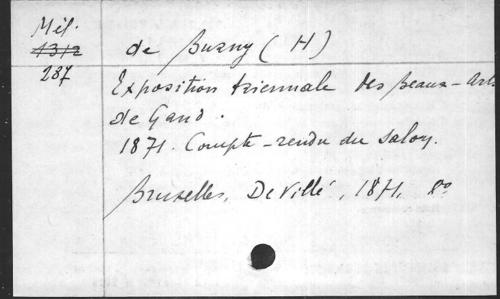 Mél.
1312
287
de Burny (H)
Exposition triennale des Beaux-Arts
de Gand.
1871. Compte-rendu du salon.
Bruxelles, De Villé, 1871, 8º